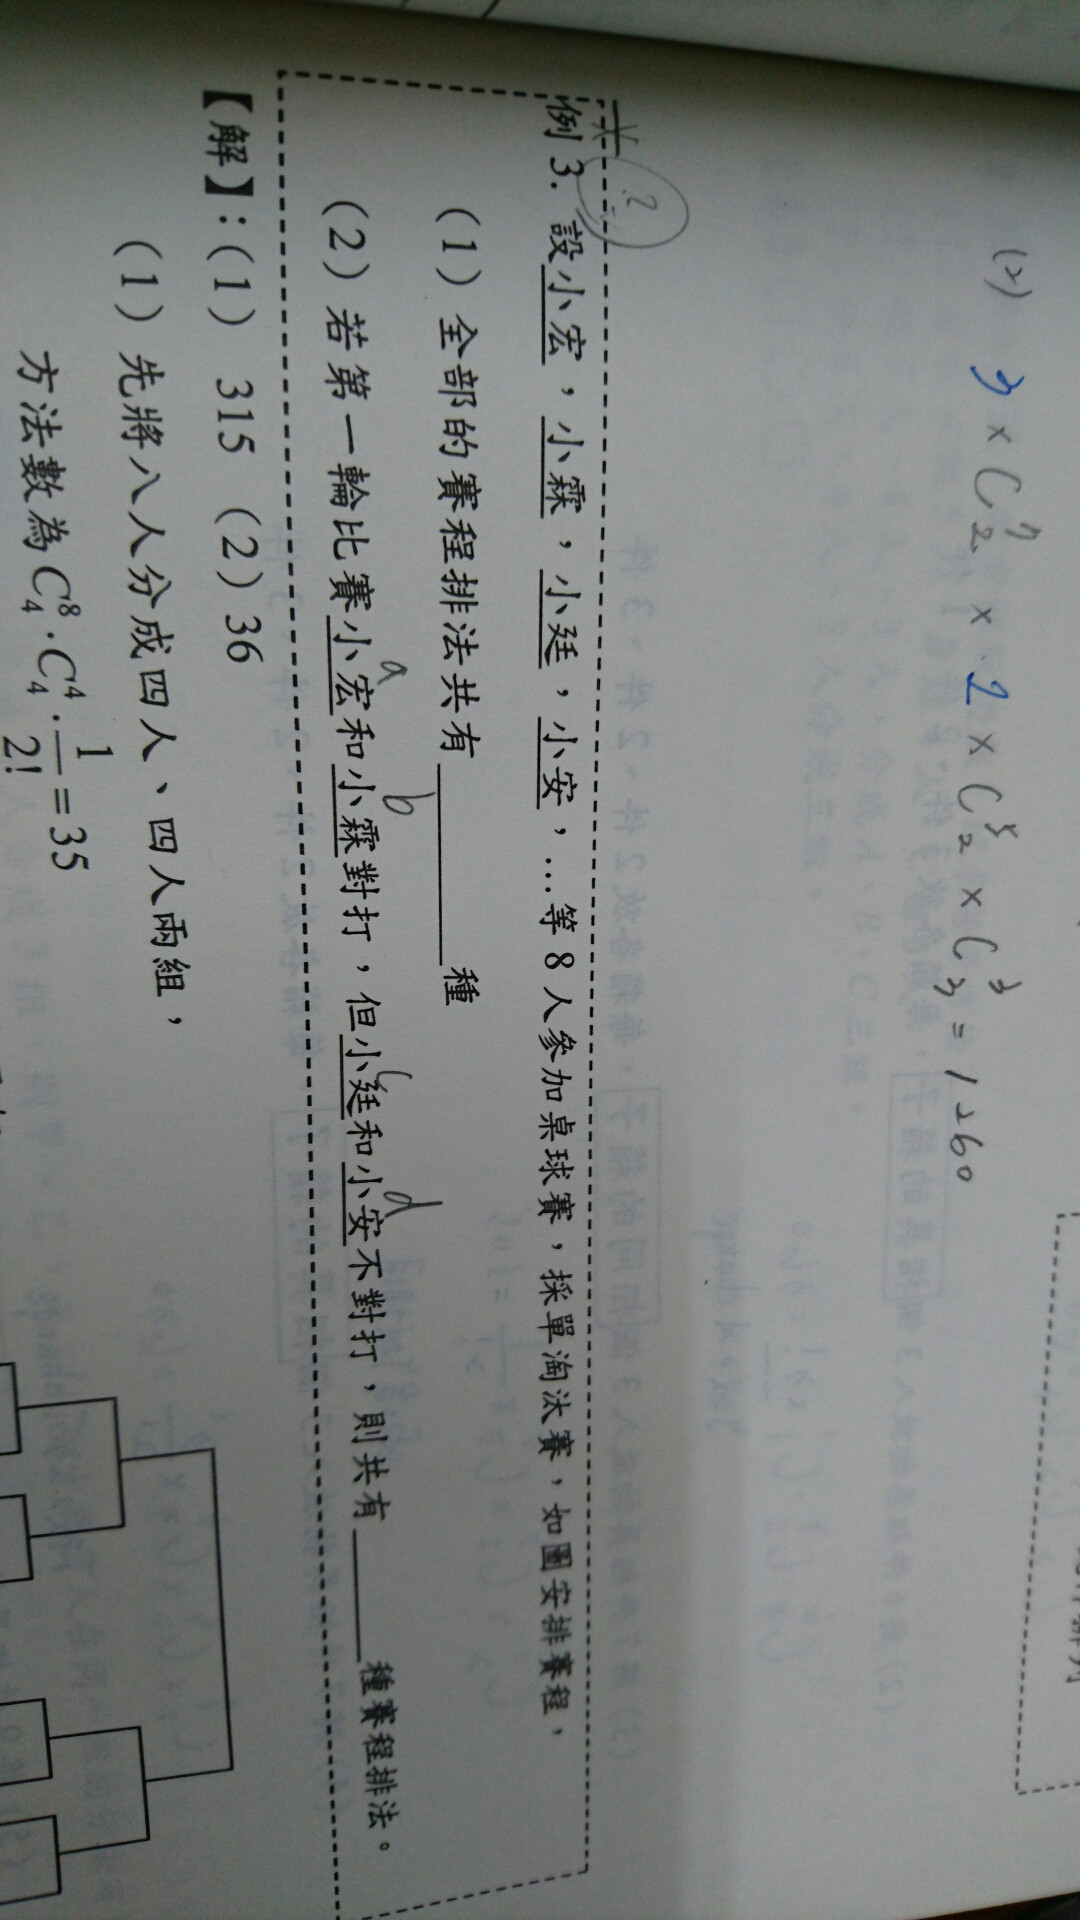 (2) 3 × C⁷₂ × 2 × C⁵₂ × C³₃ = 1260
例 3. 設小宏，小霖，小廷，小安，…等 8 人參加桌球賽，採單淘汰賽，如圖安排賽程，
?
(1) 全部的賽程排法共有______種
a b c d
(2) 若第一輪比賽小宏和小霖對打，但小廷和小安不對打，則共有______種賽程排法。
【解】：(1) 315 (2) 36
(1) 先將八人分成四人、四人兩組，
方法數為 C⁸₄ · C⁴₄ · 1/2! = 35